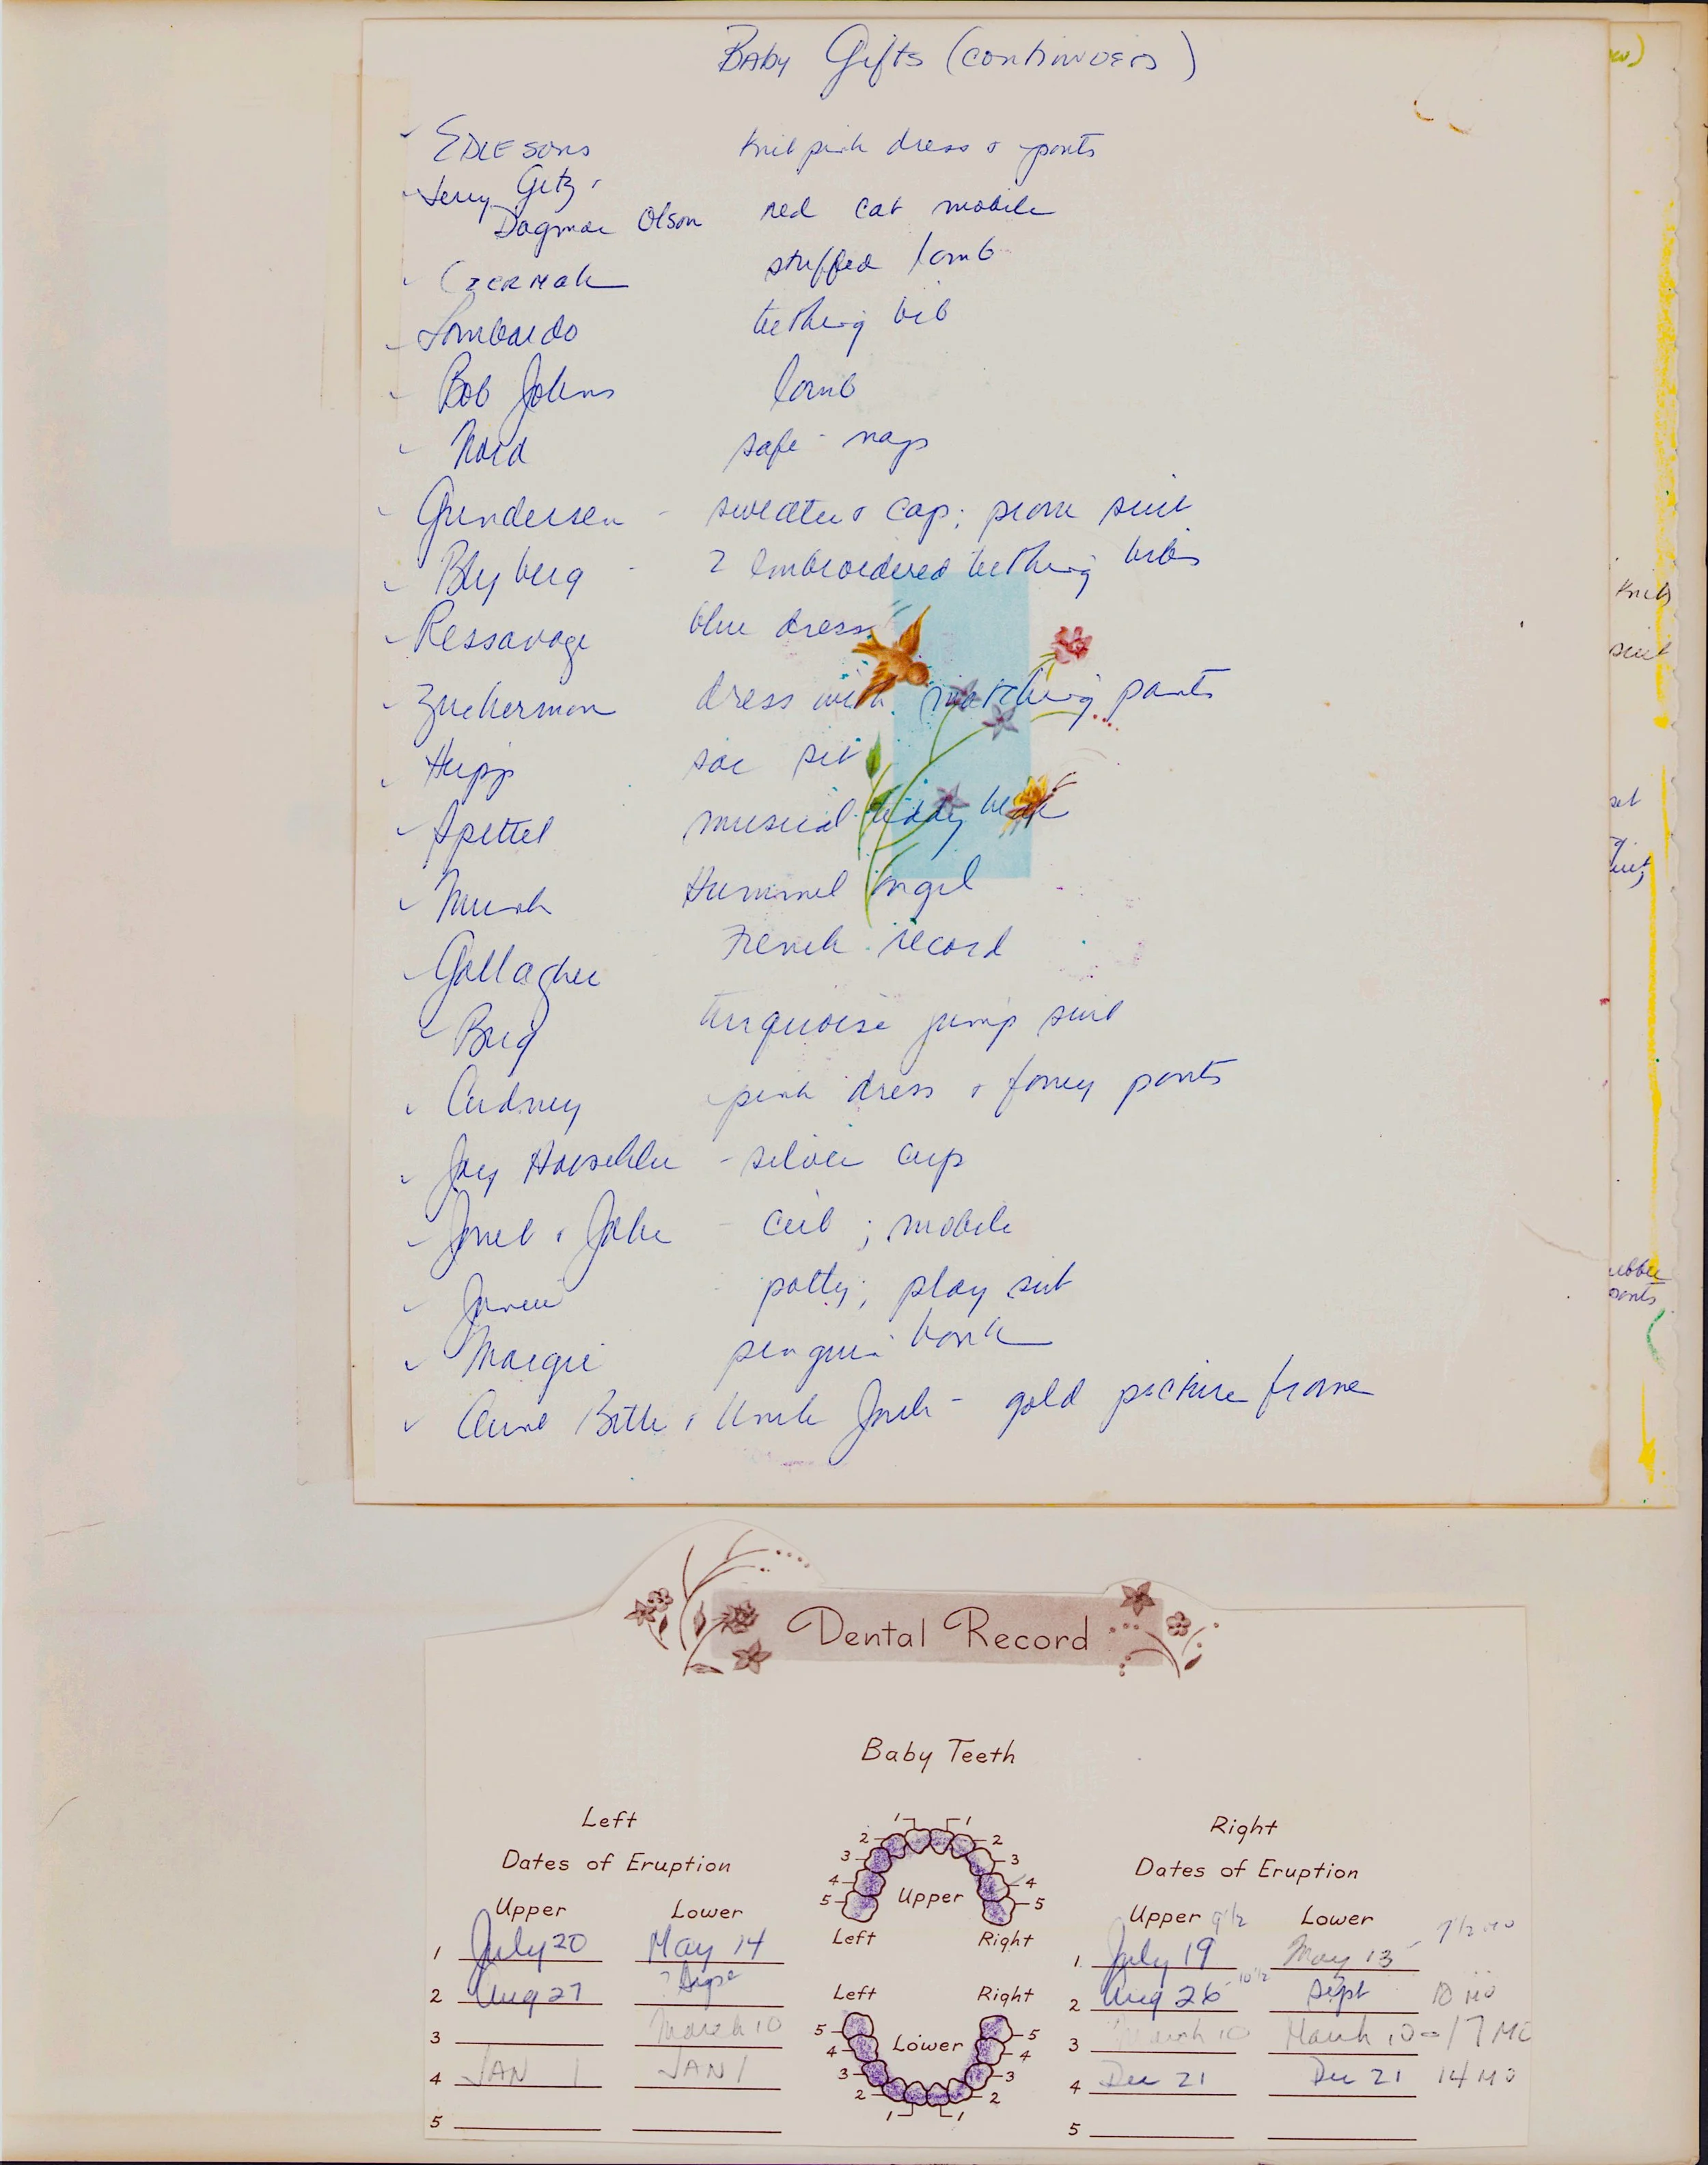 Baby Gifts (continued)
Edlesons knit pink dress & pants
Jerry Getz,
Dagmar Olson red cat mobile
Czermak stuffed lamb
Lombardo teething bib
Bob Johns lamb
Nord safe-naps
Gundersen - sweater & cap; pram suit
Blyberg - 2 embroidered teething bibs
Ressavage blue dress
Zuckerman dress with matching pants
Hupp sac set
Spettel musical teddy bear
Hummel angel
Gallagher French record
turquoise jump suit
Cudney pink dress & fancy pants
Joey - silver cup
Janet & John - crib; mobile
potty; play suit
Margie penguin bank
Aunt & Uncle Jack - gold picture frame
w)
knit
suit
set
ubber
pants
Dental Record
Baby Teeth
Left
Dates of Eruption
Upper Lower
1 July 20 May 14
2 Aug 27 ? Sept
3 March 10
4 JAN 1 JAN 1
5
1 1
2 2
3 3
4 4
5 5
Upper
Left Right
Left Right
5 5
4 4
3 3
2 2
1 1
Lower
Right
Dates of Eruption
Upper 9 1/2 Lower
1. July 19 May 13 - 7 1/2 mo
2 Aug 26 - 10 1/2 Sept 10 mo
3 March 10 March 10 - 17 MO
4 Dec 21 Dec 21 14 MO
5